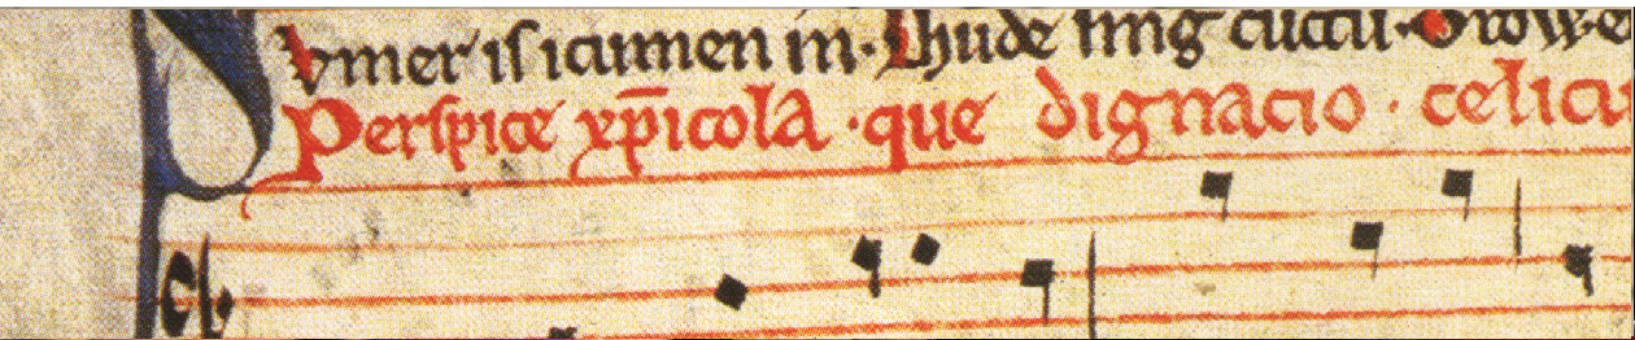 Svmer iſ icumen in· Lhude ſing cuccu· Growe
Perſpice xp̄icola ·que dignacio · celicu